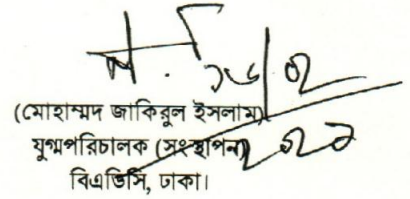 (মোহাম্মদ জাকিরুল ইসলাম)
যুগ্মপরিচালক (সংস্থাপন)
বিএডিসি, ঢাকা।